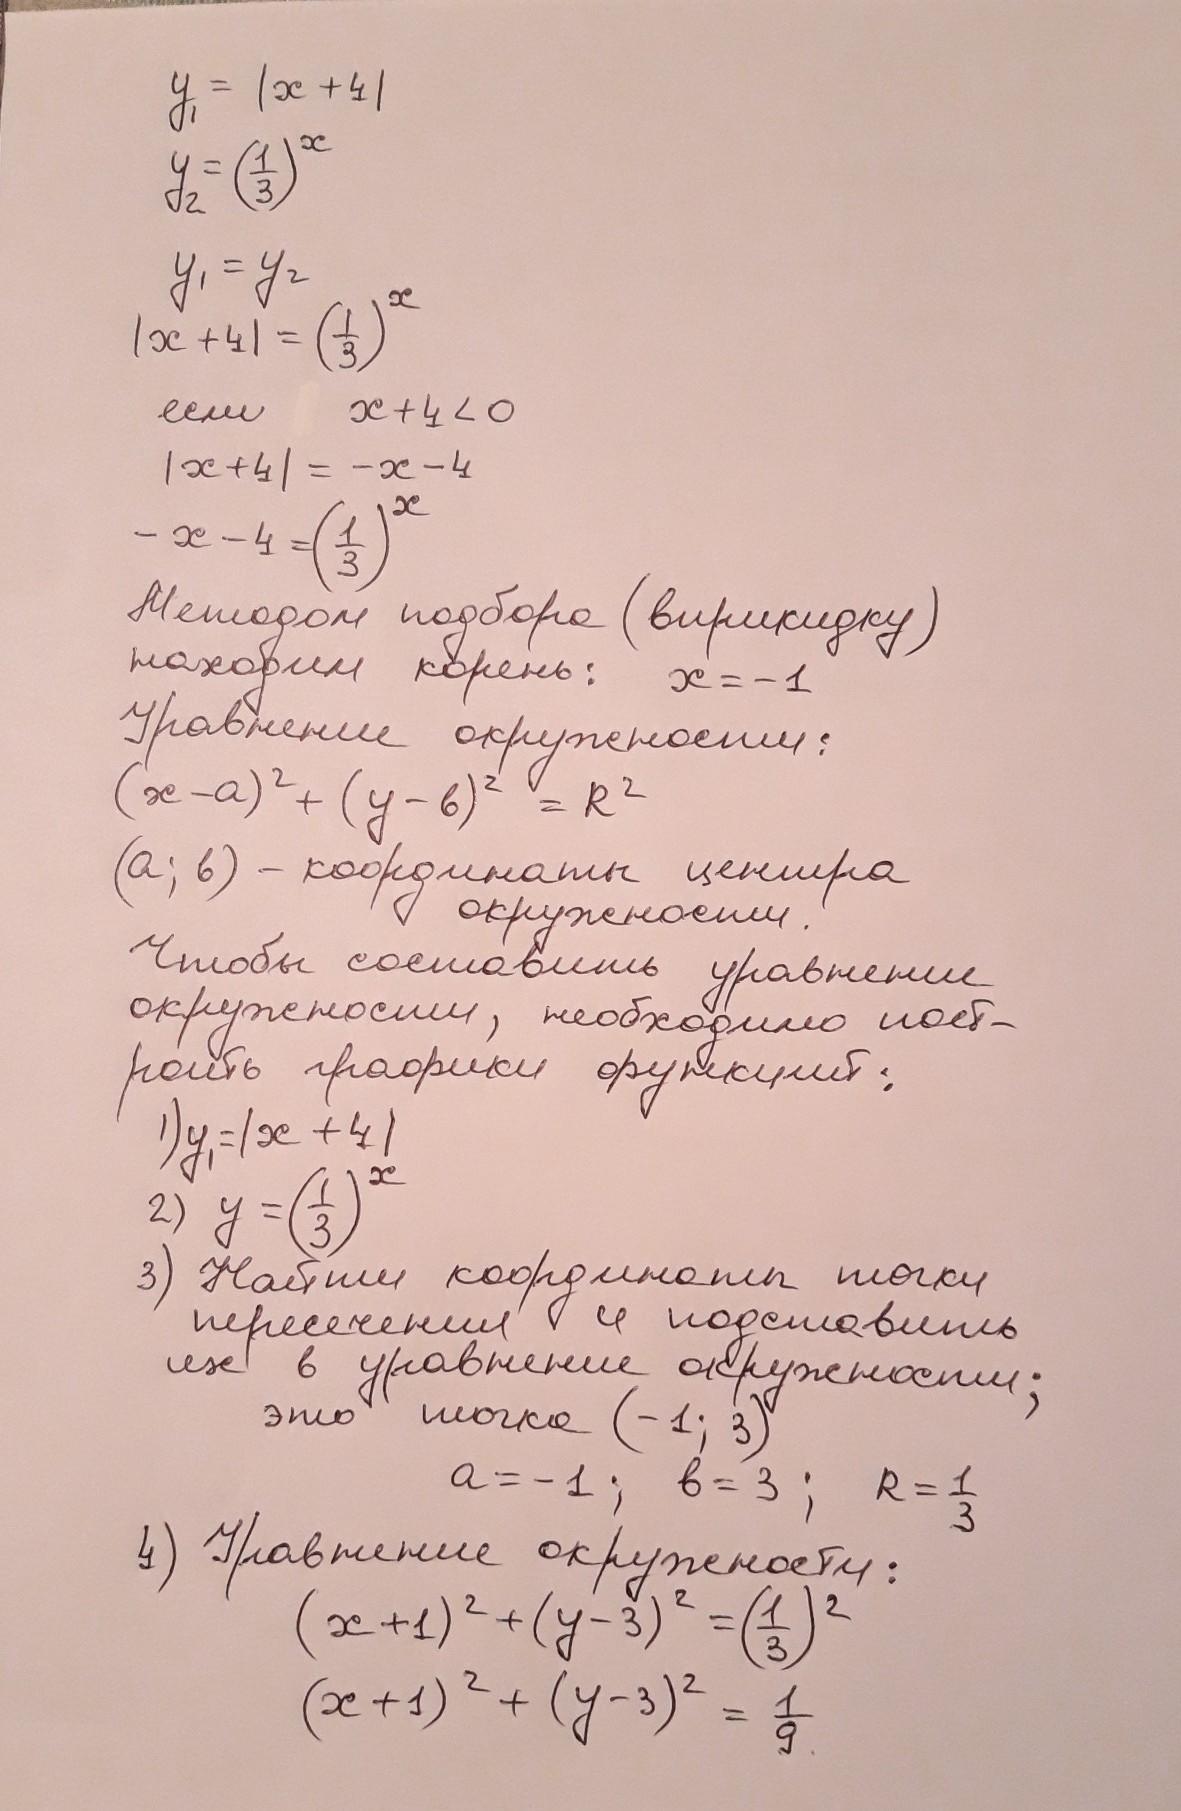 y₁ = |x + 4|
y₂ = (1/3)^x
y₁ = y₂
|x + 4| = (1/3)^x
если x + 4 < 0
|x + 4| = -x - 4
- x - 4 = (1/3)^x
Методом подбора (вприкидку)
находим корень: x = -1
Уравнение окружности:
(x - a)² + (y - в)² = R²
(а; в) - координаты центра
окружности.
Чтобы составить уравнение
окружности, необходимо пост-
роить графики функций:
1) y₁ = |x + 4|
2) y = (1/3)^x
3) Найти координаты точки
пересечения и подставить
их в уравнение окружности;
это точка (-1; 3)
a = -1; в = 3; R = 1/3
4) Уравнение окружности:
(x + 1)² + (y - 3)² = (1/3)²
(x + 1)² + (y - 3)² = 1/9.